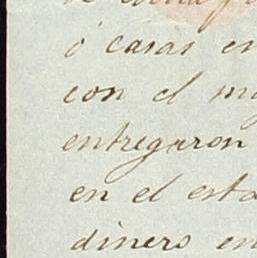 ó casas en
con el
entregaron
en el
dinero en